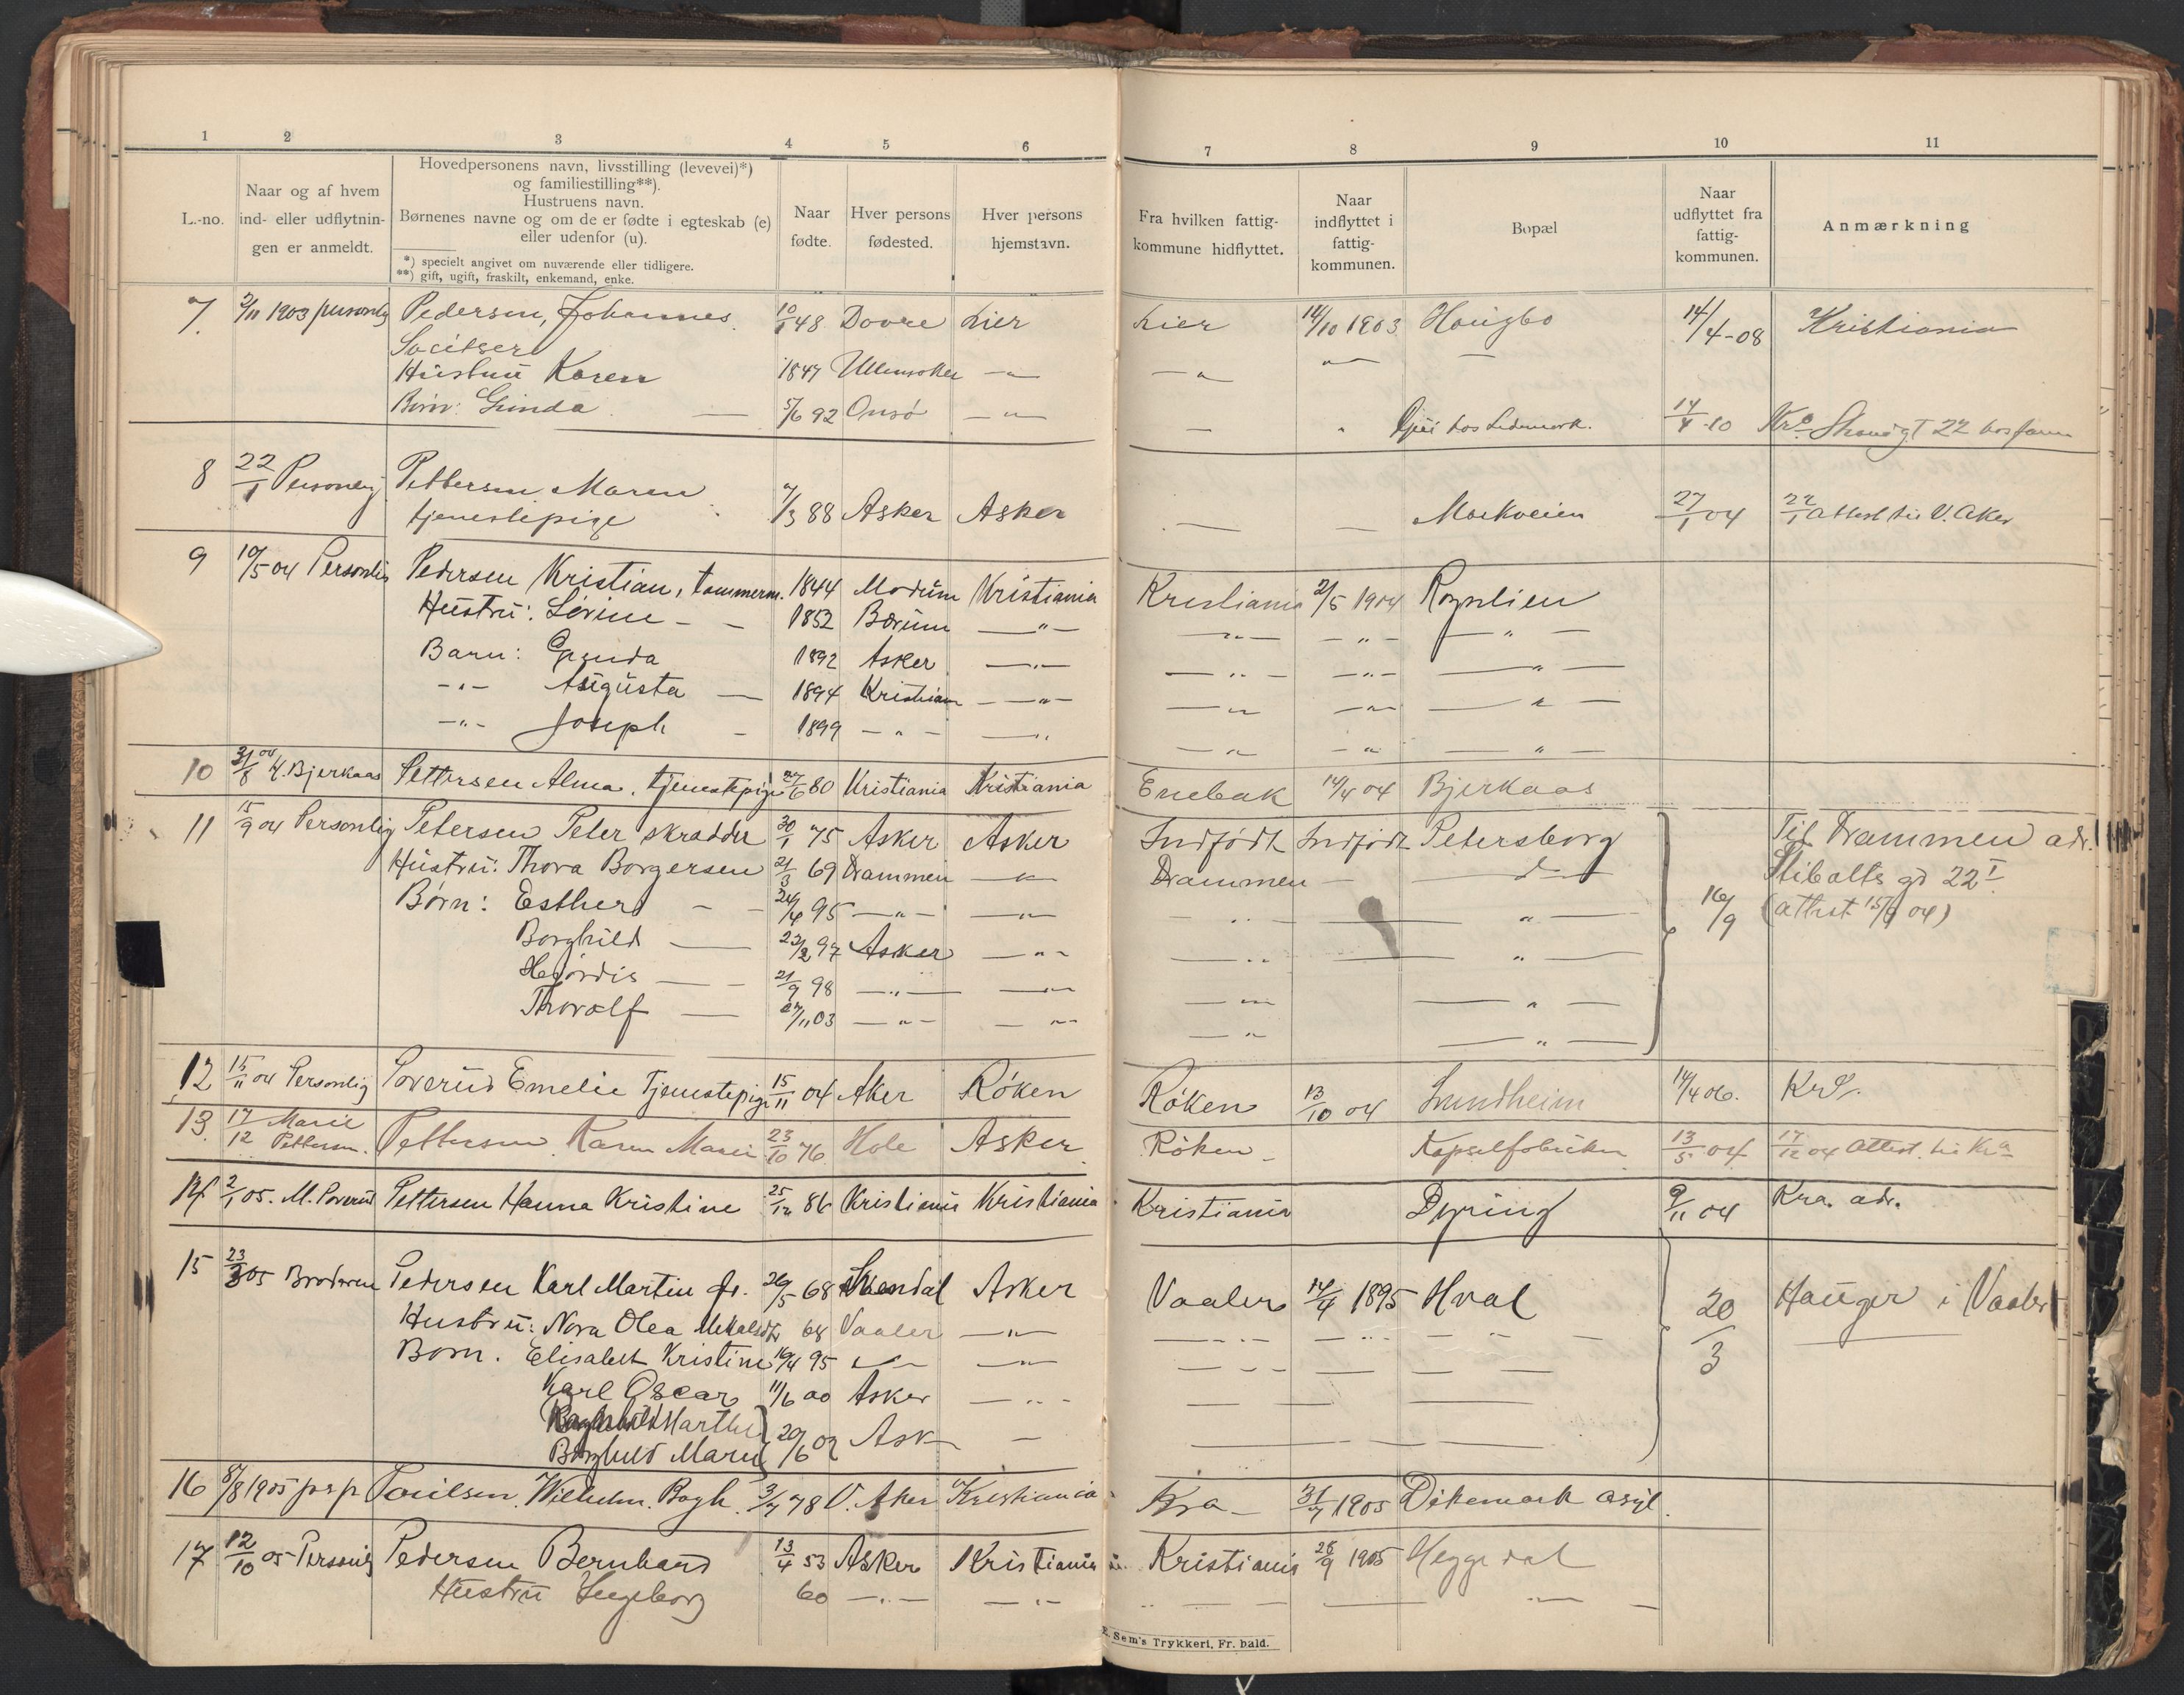 1 2 3 4 5 6 7 8 9 10 11
L.-no.
Naar og af hvem
ind- eller udflytnin-
gen er anmeldt.
Hovedpersonens navn, livsstilling (levevei)*)
og familiestilling**).
Hustruens navn.
Børnenes navne og om de er fødte i egteskab (e)
eller udenfor (u).
*) specielt angivet om nuværende eller tidligere.
**) gift, ugift, fraskilt, enkemand, enke.
Naar
fødte.
Hver persons
fødested.
Hver persons
hjemstavn.
Fra hvilken fattig-
kommune hidflyttet.
Naar
indflyttet i
fattig-
kommunen.
Bopæl
Naar
udflyttet fra
fattig-
kommunen.
Anmærkning
7. 2/11 1903 personlig Pedersen, Johannes 10/1 48 Dovre Lier Lier 14/10 1903 Haugbo 14/4-08 Kristiania
Hustru Karen 1847 Ullensaker —"— —"— " —
Børn: Gunda — 5/6 92 Onsø —"— — " hos 14/4-10 22
8 22/1 Personlig Pettersen Maren 7/3 88 Asker Asker — — Markveien 27/1 04 22/1 Attest til V. Aker
tjenestepige
9 10/5 04 Personlig Pedersen Kristian, tømmerm. 1844 Modum Kristiania Kristiania 2/5 1904
Hustru: Lovine — — 1852 Bærum —"— —"— —"— —"—
Barn: Gunda 1892 Asker —"— —"— —"— —"—
—"— Augusta — 1894 Kristiania —"— —"— —"— —"—
—"— Joseph — 1899 —"— —"— —"— —"— —"—
10 31/8 04 H. Bjerkaas Pettersen Alma, tjenestepige 27/6 80 Kristiania Kristiania Enebak 14/4 04 Bjerkaas
11 15/9 04 Personlig Petersen Peter skrædder 30/1 75 Asker Asker Indfødt Indfødt Petersborg 16/9 Til Drammen adr.
Hustru: Thora Borgersen 21/3 69 Drammen —"— Drammen — Stibolts gd 22 I
Børn: Esther — — 24/4 95 —"— —"— " — —"— (attest 15/9 04)
Borghild — 22/2 97 Asker —"— —"— — —"—
Hjørdis — — 21/9 98 —"— —"— —"— —"—
Thorolf — 27/11 03 —"— —"— —"— —"—
12 15/11 04 Personlig Poverud Emelie Tjenestepige 15/11 04 Aker Røken Røken 13/10 04 Lundheim 14/4 06. Kra.
13. 17/12 Marie Petterson. Pettersen Karen Marie 23/10 76 Hole Asker Røken — Kapselfabriken 13/5 04 17/12 04 Attest. til Kra
14 2/1 05. M. Poverud Pettersen Hanna Kristine 25/12 86 Kristiania Kristiania Kristiania Dyring 9/11 04 Kra. adr.
15 23/3 05 Broderen Pedersen Karl Martin gr. 26/5 68 Asker Vaaler 14/4 1895 Hval 20/3 Hauger i Vaaler
Hustru: Nora Olea 68 Vaaler —"— —"— —"— — " —
Børn. Elisabet Kristine 16/4 95 —"— —"— — — —
Karl Oscar 11/6 00 Asker —"— — — —
Marthe
Borghild Marie 20/6 02 Ask — — — — —
16 8/8 1905 Poulsen. Wilhelm. Bogh. 3/7 78 V. Aker Kristiania Kra — 31/7 1905 Dikemark asyl.
17 12/10 05 Personlig Pedersen Bernhard 13/4 53 Asker Kristiania Kristiania 28/9 1905 Heggedal
Hustru Ingeborg 60 —"— —"— " — — — —"— —
E. Sem's Trykkeri, Fr. hald.